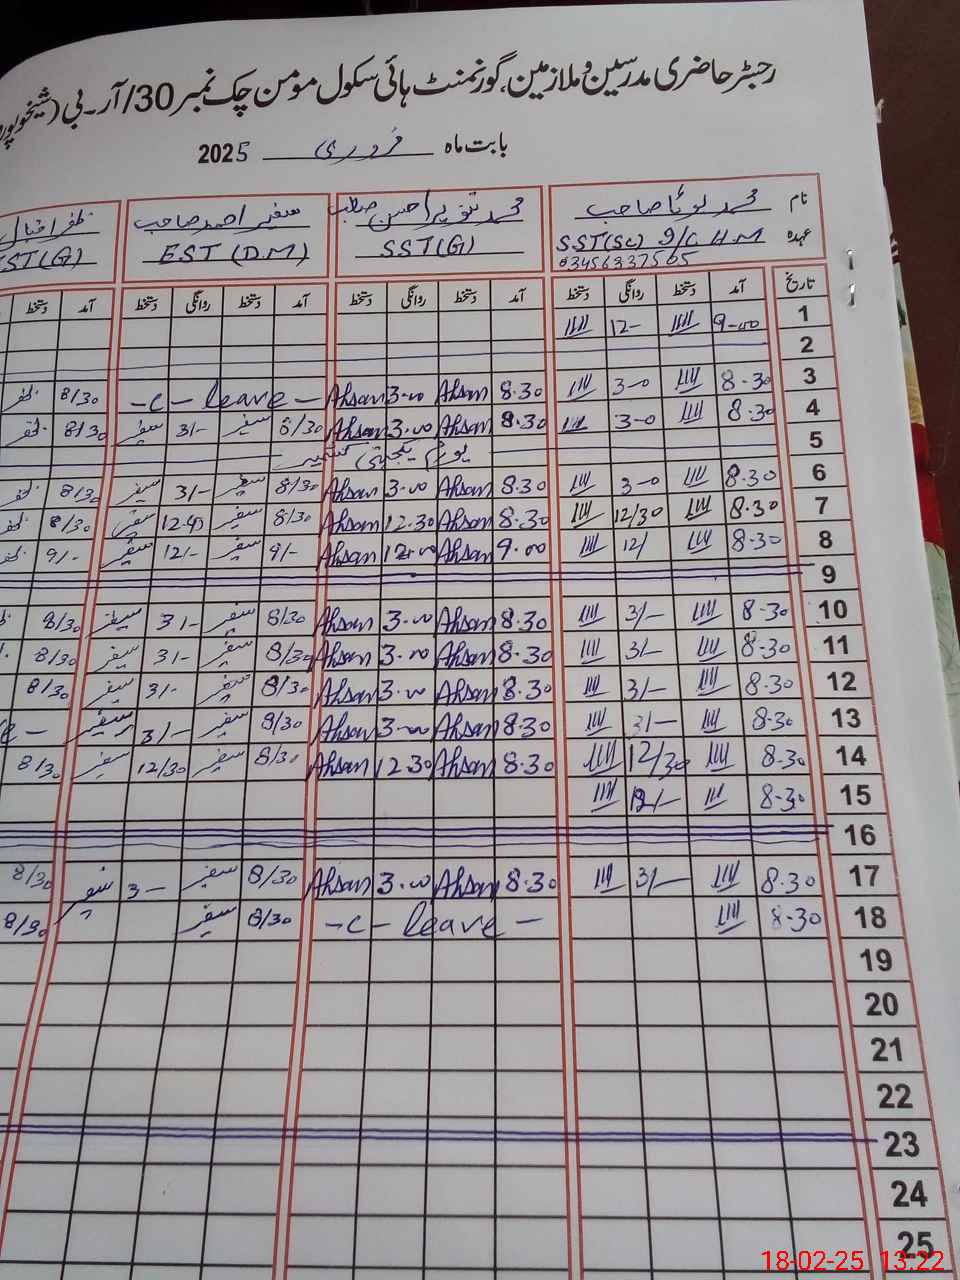 رجسٹر حاضری مدرسین و ملازمین، گورنمنٹ ہائی سکول مومن چک نمبر 30/آر۔بی (شیخوپورہ
بابت ماہ فروری 2025
نام محمد بوٹا صاحب محمد تنویر احسن صاحب سفیر احمد صاحب ظفر اقبال
عہدہ SST(Sc) I/C H.M SST(G) EST(DM) EST(G)
03456337565
تاریخ آمد دستخط روانگی دستخط آمد دستخط روانگی دستخط آمد دستخط روانگی دستخط آمد دستخط
1 9-00 12-
2
3 8-30 3-0 8.30 Ahsan 3.00 Ahsan -C- leave - 8/30 ظفر
4 8-30 3-0 8.30 Ahsan 3.00 Ahsan 8/30 سفیر 3/- سفیر 8/30 ظفر
5 یوم یکجہتی کشمیر
6 8-30 3-0 8.30 Ahsan 3.00 Ahsan 8/30 سفیر 3/- سفیر 8/30 ظفر
7 8-30 12/30 8.30 Ahsan 12.30 Ahsan 8/30 سفیر سفیر 8/30 ظفر
8 8-30 12/ 9.00 Ahsan 12.00 Ahsan 9/- سفیر 12/- سفیر 9/- ظفر
9
10 8-30 3/- 8.30 Ahsan 3.00 Ahsan 8/30 سفیر 3/- سفیر 8/30
11 8-30 3/- 8.30 Ahsan 3.00 Ahsan 8/30 سفیر 3/- سفیر 8/30
12 8-30 3/- 8.30 Ahsan 3.00 Ahsan 8/30 سفیر 3/- سفیر 8/30
13 8-30 3/- 8.30 Ahsan 3.00 Ahsan 8/30 سفیر 3/- سفیر
14 8-30 12/30 8.30 Ahsan 12.30 Ahsan 8/30 سفیر 12/30 سفیر 8/30
15 8-30 12/-
16
17 8-30 3/- 8.30 Ahsan 3.00 Ahsan 8/30 سفیر 3- سفیر 8/30
18 8-30 -C- leave - 8/30 سفیر 8/30
19
20
21
22
23
24
25
18-02-25 13:22